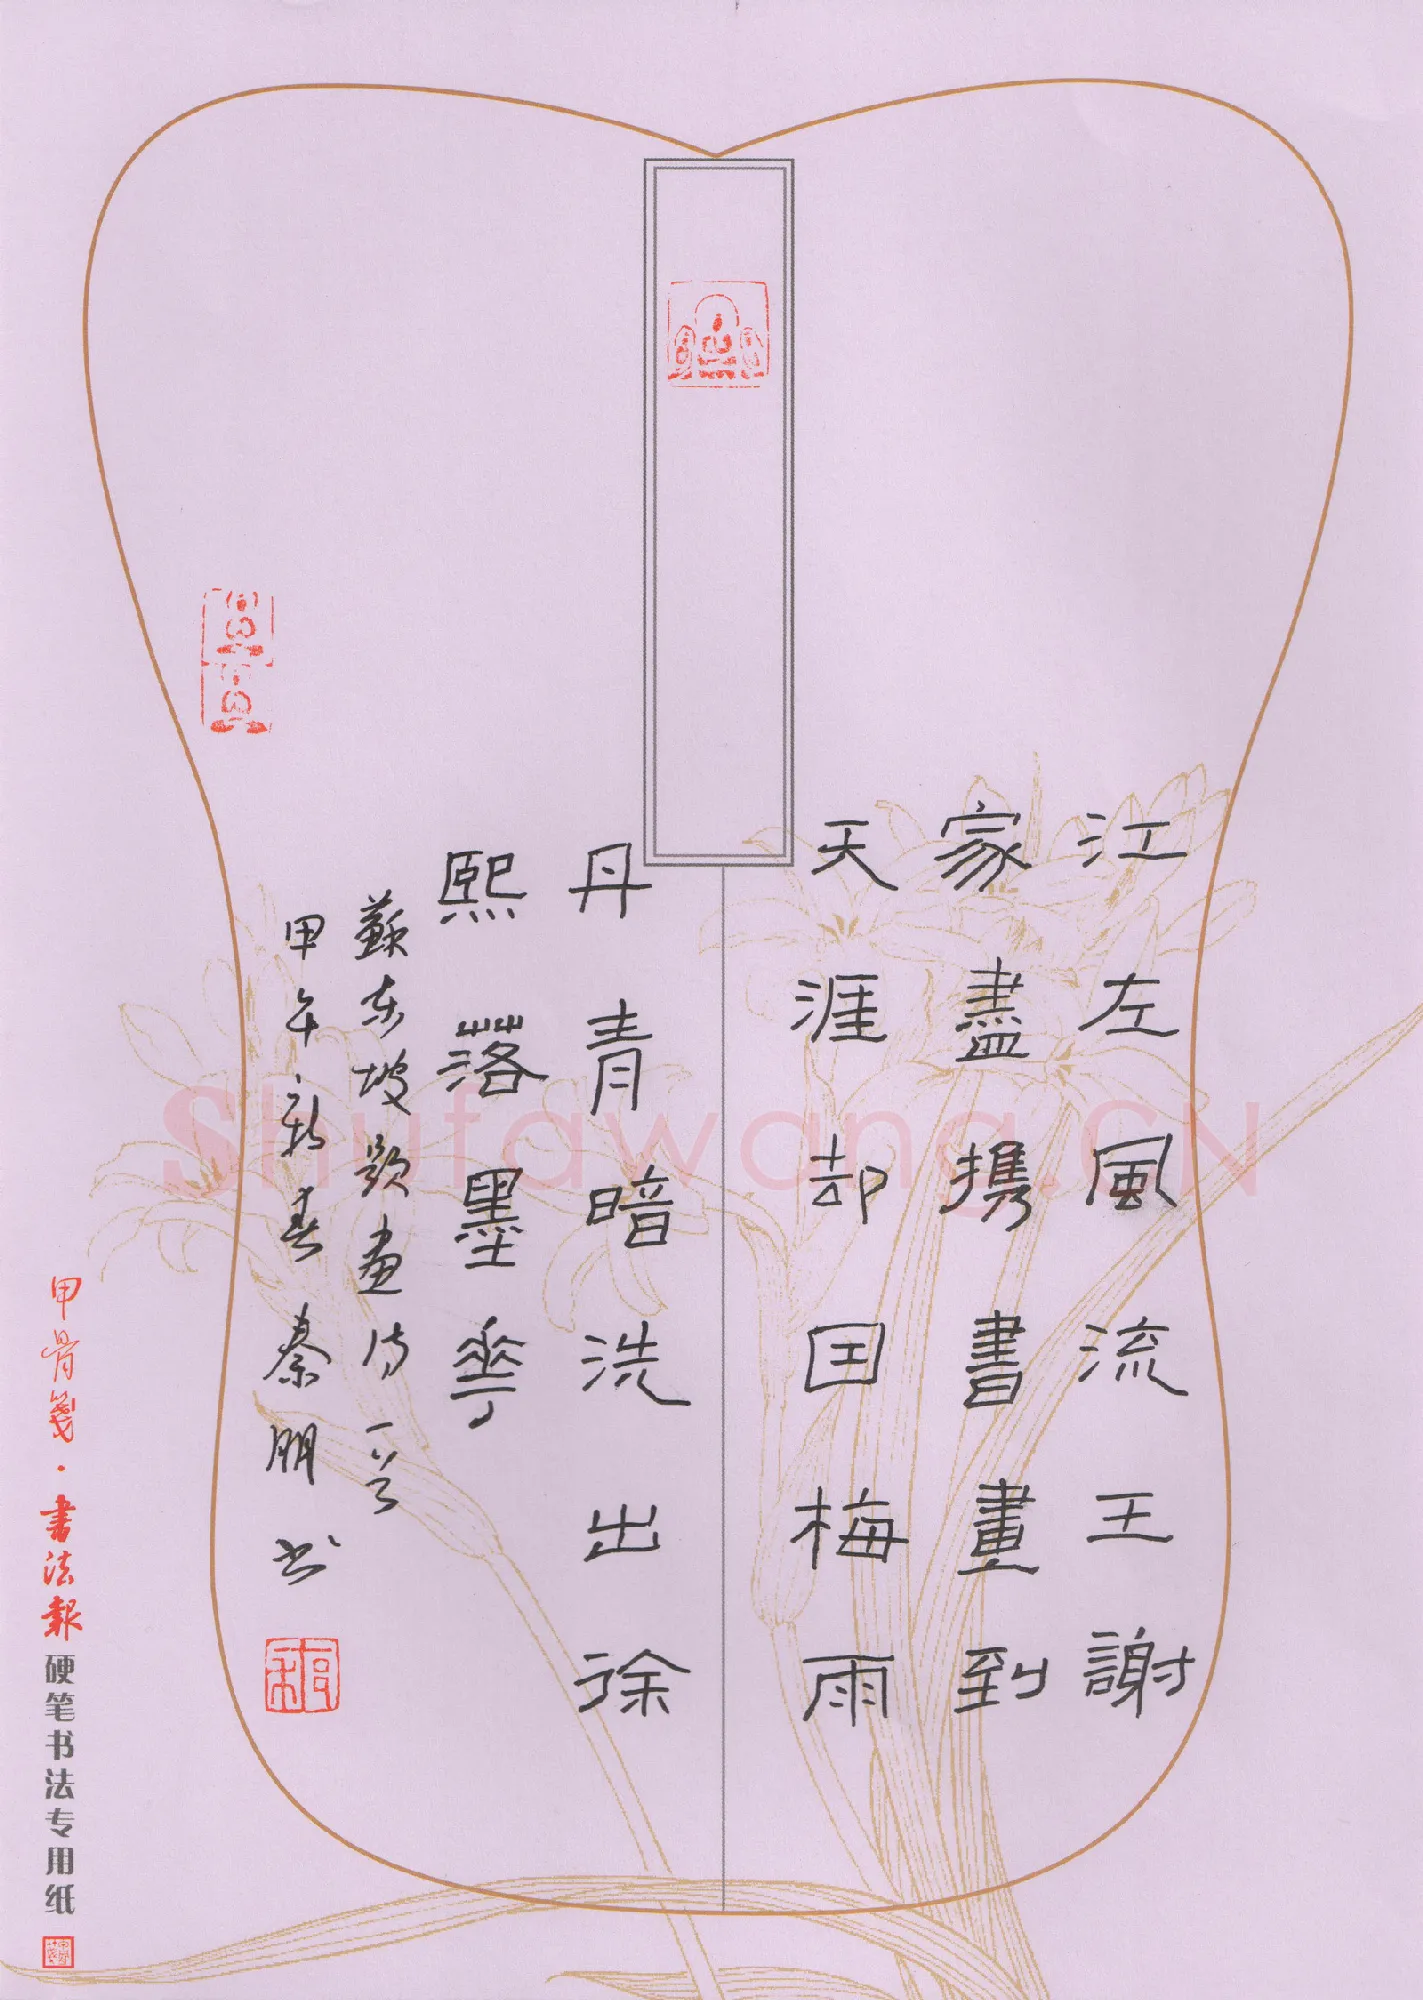 江左風流王謝
家盡攜書畫到
天涯却因梅雨
丹青暗洗出徐
熙落墨華
蘇東坡題畫詩一首
甲午新春秦朋书
甲骨笺·書法報硬笔书法专用纸
Shufawang.CN